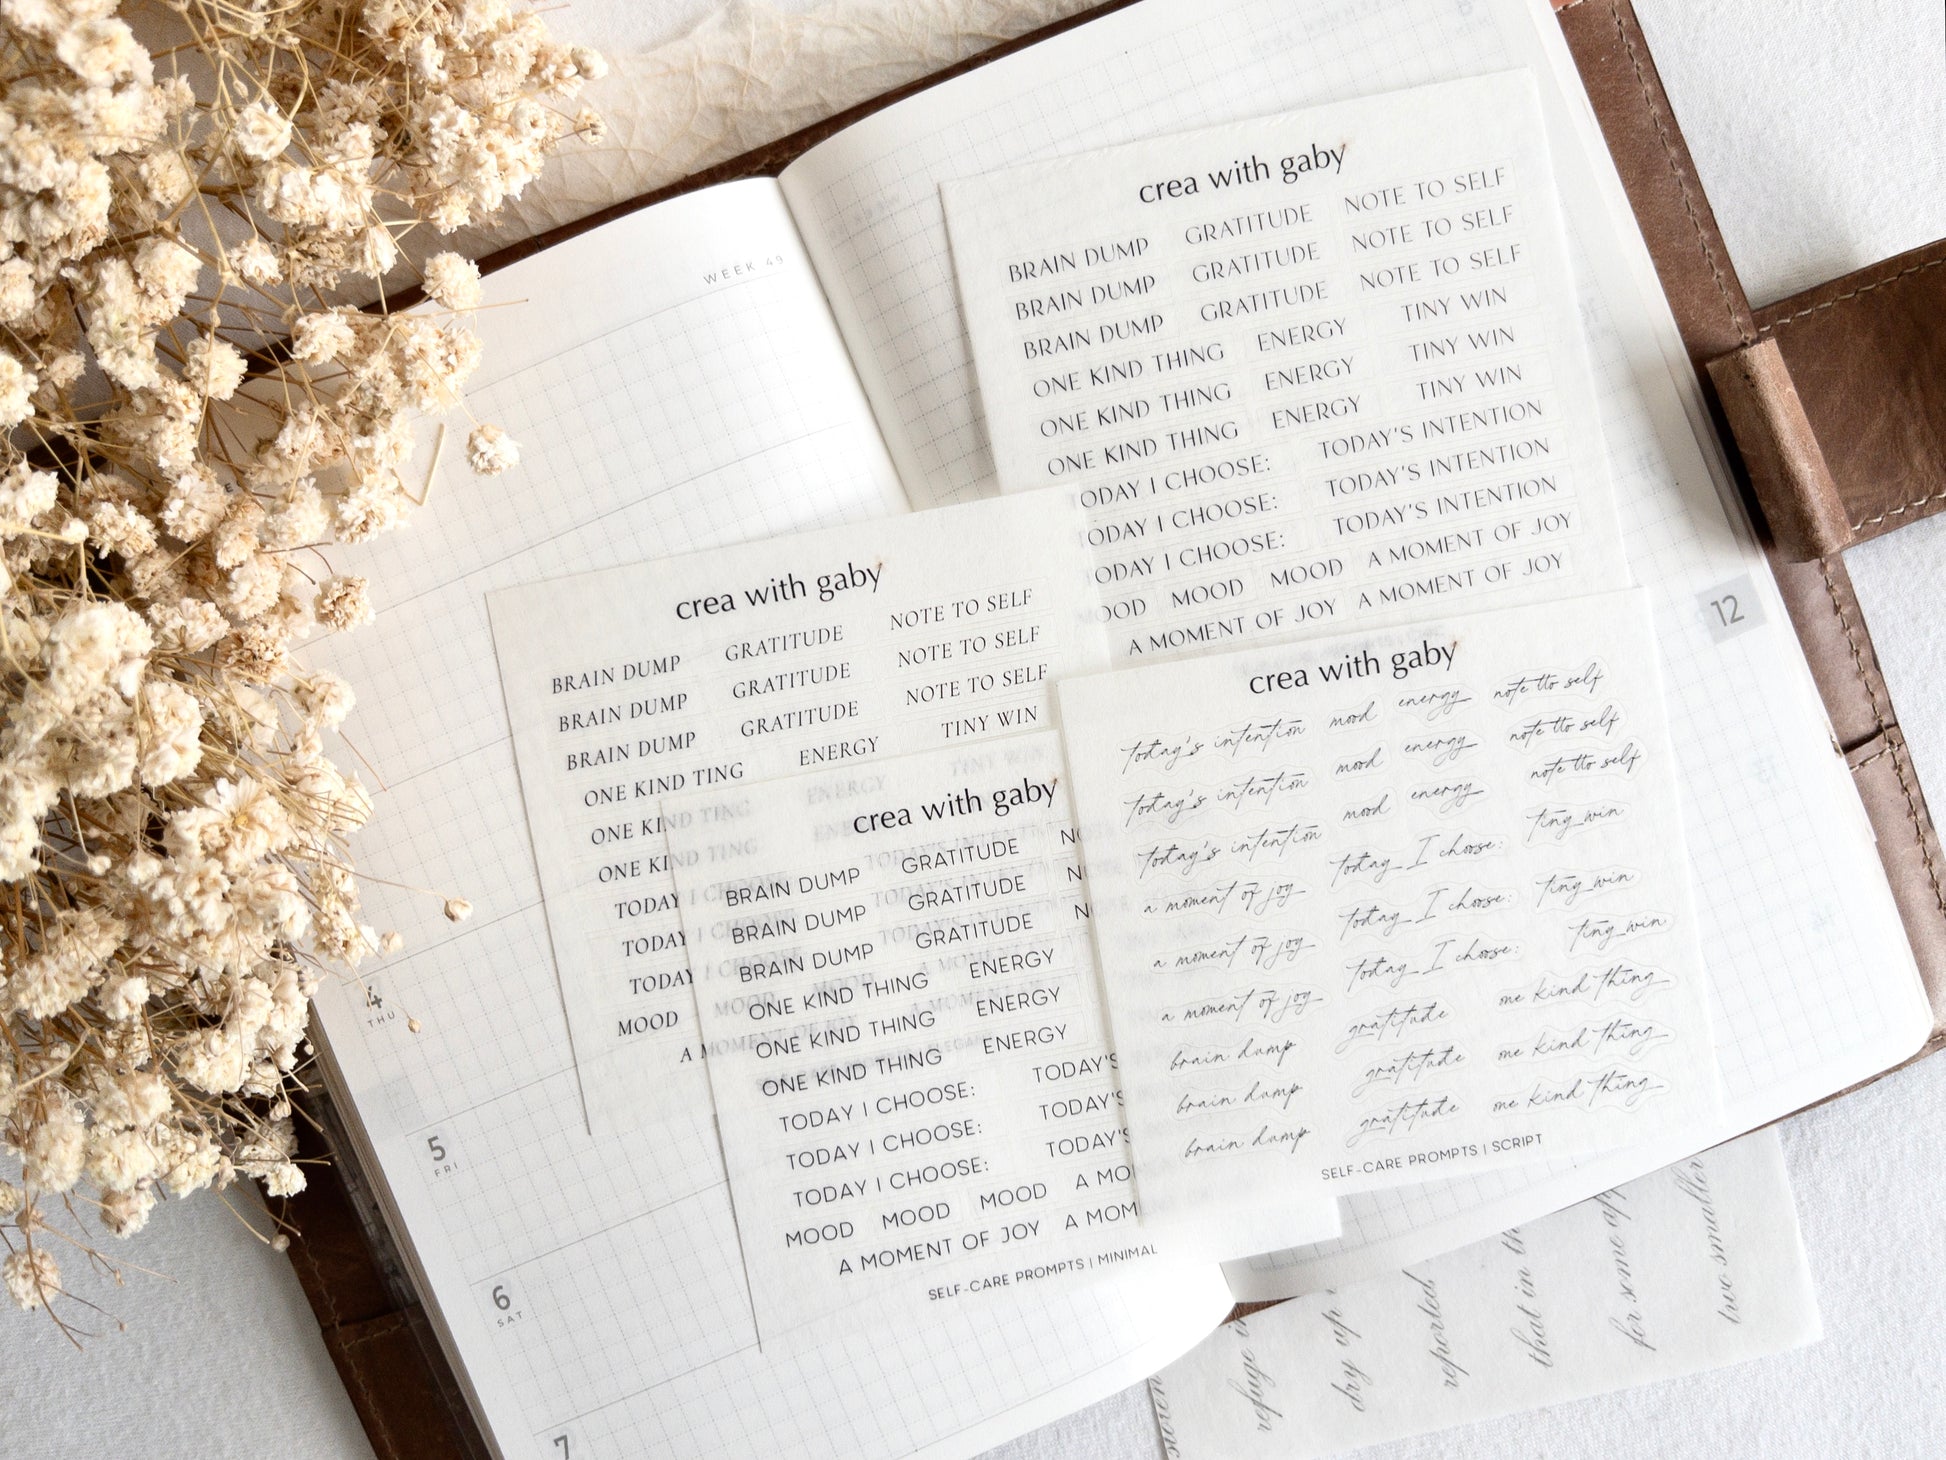 WEEK 49
4
THU
5
FRI
6
SAT
7
12
crea with gaby
BRAIN DUMP GRATITUDE NOTE TO SELF
BRAIN DUMP GRATITUDE NOTE TO SELF
BRAIN DUMP GRATITUDE NOTE TO SELF
ONE KIND THING ENERGY TINY WIN
ONE KIND THING ENERGY TINY WIN
ONE KIND THING ENERGY TINY WIN
ODAY I CHOOSE: TODAY'S INTENTION
ODAY I CHOOSE: TODAY'S INTENTION
ODAY I CHOOSE: TODAY'S INTENTION
OOD MOOD MOOD A MOMENT OF JOY
A MOMENT OF JOY A MOMENT OF JOY
crea with gaby
BRAIN DUMP GRATITUDE NOTE TO SELF
BRAIN DUMP GRATITUDE NOTE TO SELF
BRAIN DUMP GRATITUDE NOTE TO SELF
ONE KIND TING ENERGY TINY WIN
ONE KIND TING ENERGY TINY WIN
ONE KIND TING
TODAY I CHOOSE
TODAY I CHOOSE
TODAY I CHOOSE
MOOD MOOD MOOD
A MOMENT OF JOY
crea with gaby
BRAIN DUMP GRATITUDE NO
BRAIN DUMP GRATITUDE N
BRAIN DUMP GRATITUDE N
ONE KIND THING ENERGY
ONE KIND THING ENERGY
ONE KIND THING ENERGY
TODAY I CHOOSE: TODAY'S
TODAY I CHOOSE: TODAY'S
TODAY I CHOOSE: TODAY'S
MOOD MOOD MOOD A MO
A MOMENT OF JOY A MOM
SELF-CARE PROMPTS | MINIMAL
crea with gaby
today's intention mood energy note tto self
today's intention mood energy note tto self
today's intention mood energy note tto self
a moment of joy today I choose: tiny win
a moment of joy today I choose: tiny win
a moment of joy today I choose: tiny win
brain dump gratitude one kind thing
brain dump gratitude one kind thing
brain dump gratitude one kind thing
SELF-CARE PROMPTS | SCRIPT
refuge in
dry up
reported
that in th
for some ap
two smaller